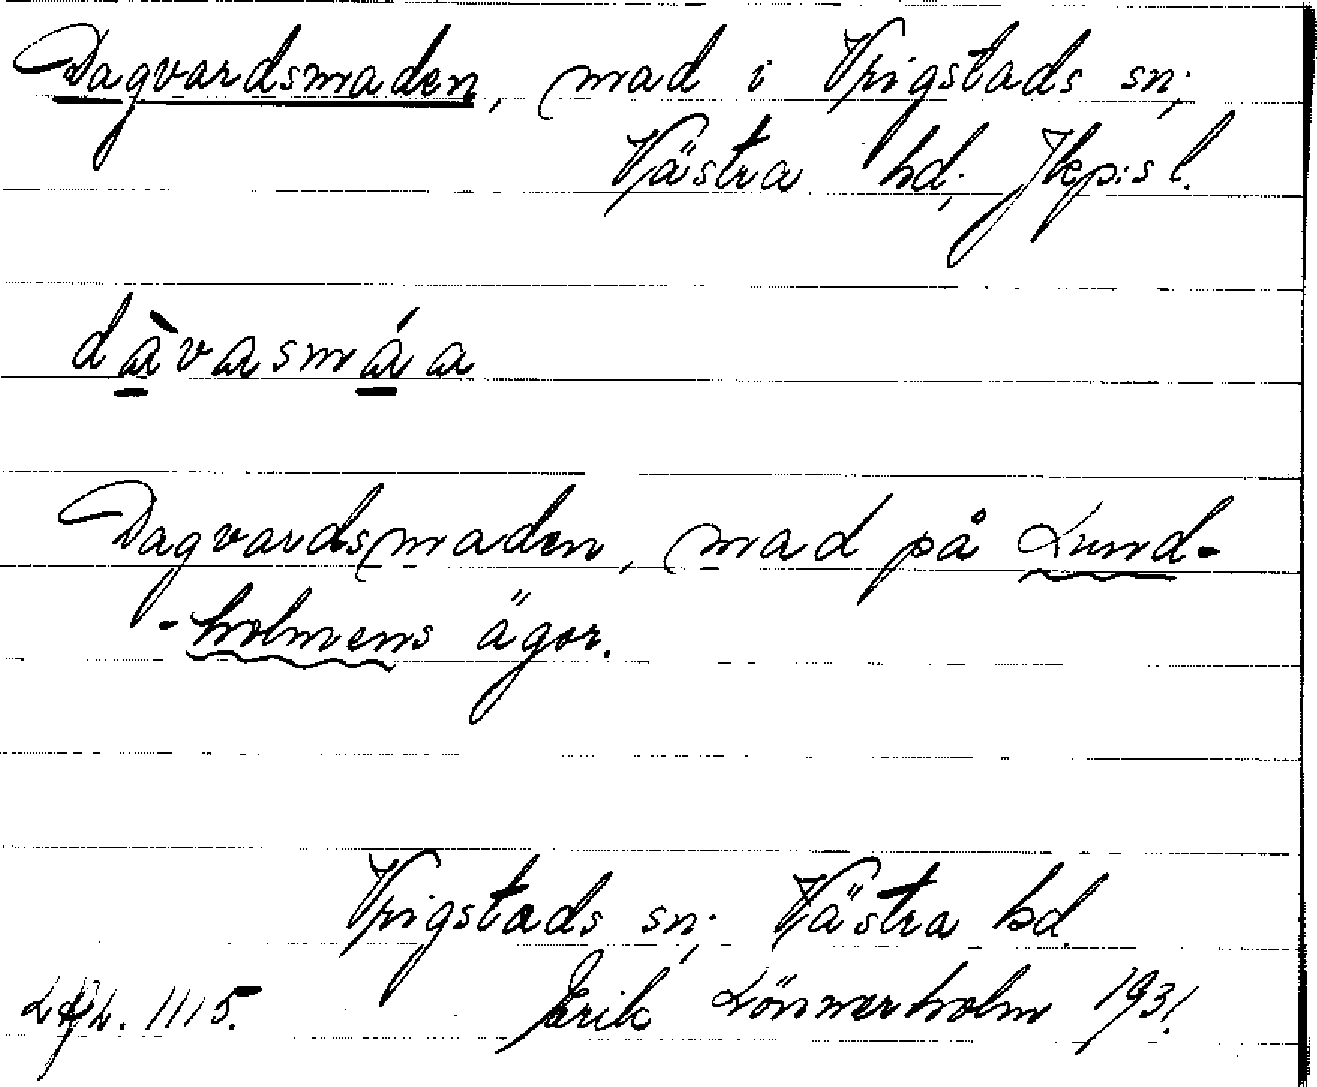 Dagvardsmaden, mad i Vrigstads sn;
Västra hd; Jkpis l.
dàvasmáa
Dagvardsmaden, mad på Lund-
-holmens ägor.
Vrigstads sn; Västra hd.
1115. Erik Lönnerholm 1931.